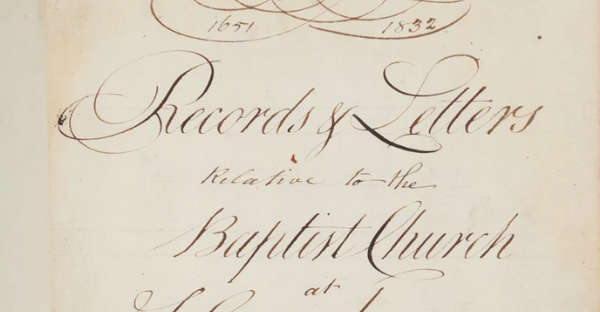 1651 1832
Records & Letters
Relative to the
Baptist Church
at